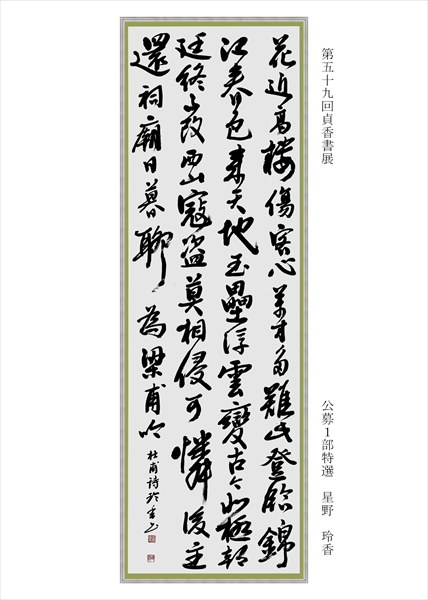 第五十九回貞香書展
公募1部特選 星野 玲香
花近高楼傷客心萬方多難此登臨錦
江春色来天地玉壘浮雲變古今北極朝
廷終不改西山寇盗莫相侵可憐後主
還祠廟日暮聊為梁甫吟
杜甫詩玲香書